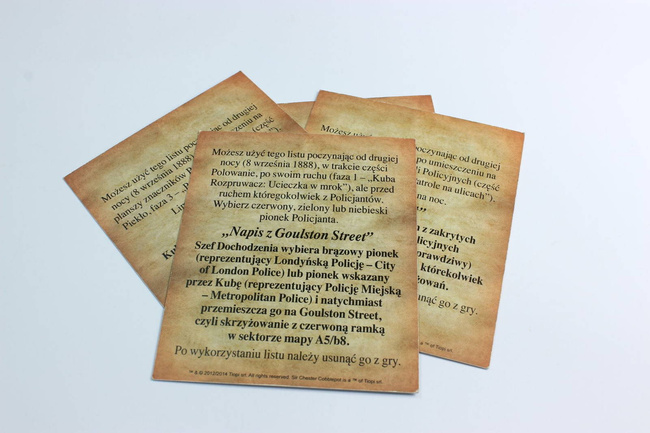 Możesz użyć tego listu poczynając od drugiej
nocy (8 września 1888), w trakcie części
Polowanie, po swoim ruchu (faza 1 – „Kuba
Rozpruwacz: Ucieczka w mrok”), ale przed
ruchem któregokolwiek z Policjantów.
Wybierz czerwony, zielony lub niebieski
pionek Policjanta.
„Napis z Goulston Street”
Szef Dochodzenia wybiera brązowy pionek
(reprezentujący Londyńską Policję – City
of London Police) lub pionek wskazany
przez Kubę (reprezentujący Policję Miejską
– Metropolitan Police) i natychmiast
przemieszcza go na Goulston Street,
czyli skrzyżowanie z czerwoną ramką
w sektorze mapy A5/b8.
Po wykorzystaniu listu należy usunąć go z gry.
™ & © 2012/2014 Tiopi srl. All rights reserved. Sir Chester Cobblepot is a ™ of Tiopi srl.
Możesz użyć tego listu poczynając od drugiej
nocy (8 września 1888)
planszy znaczników P
Piekło, faza 3 – „P
Li
Ku
czynając od drugiej
po umieszczeniu na
i Policyjnych (część
atrole na ulicach”).
na noc.
”
z zakrytych
licyjnych
prawdziwy)
którekolwiek
owań.
unąć go z gry.
™ of Tiopi srl.